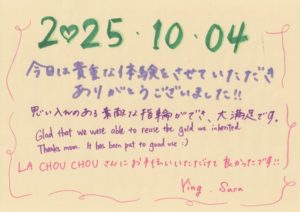 2♡25・10・04
今日は貴重な体験をさせていただき
ありがとうございました!!
思い入れのある素敵な指輪ができ、大満足です。
Glad that we were able to reuse the gold we inherited.
Thanks mom. It has been put to good use :)
LA CHOU CHOU さんにお手伝いいただけて良かったです!!
Ying. Sara